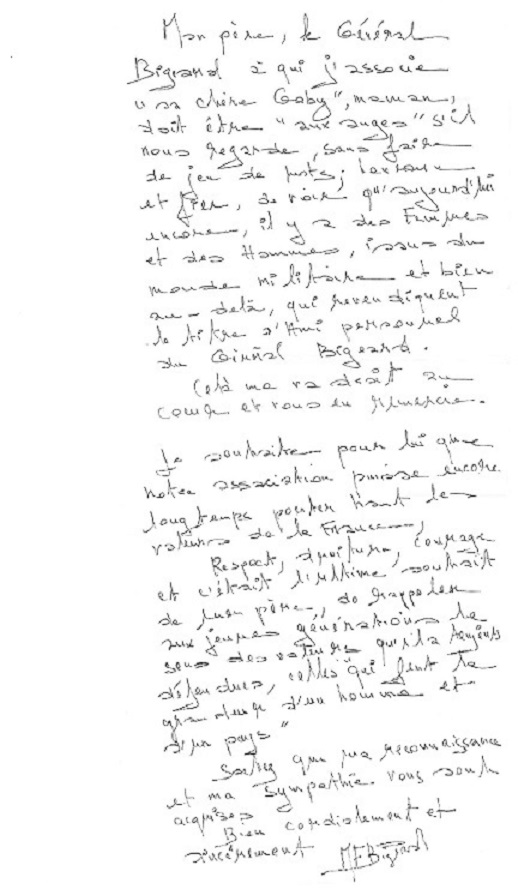 Mon père, le Général
Bigeard à qui j'associe
"sa chère Gaby", maman,
doit être "aux anges" s'il
nous regarde, sans faire
de jeu de mots; heureux
et fier, de voir qu'aujourd'hui
encore, il y a des Femmes
et des Hommes, issus du
monde militaire et bien
au-delà, qui revendiquent
le titre d'Ami personnel
du Général Bigeard.
Celà me va droit au
coeur et vous en remercie.
Je souhaite pour lui que
notre association puisse encore
longtemps porter haut les
valeurs de la France,
Respect, droiture, courage
et c'était l'ultime souhait
de mon père, de rappeler
aux jeunes générations le
sens des valeurs qu'il a toujours
défendues, celles "qui font la
grandeur d'un homme et
d'un pays"
Soyez que ma reconnaissance
et ma sympathie vous sont
acquises
Bien cordialement et
sincèrement M F Bigeard